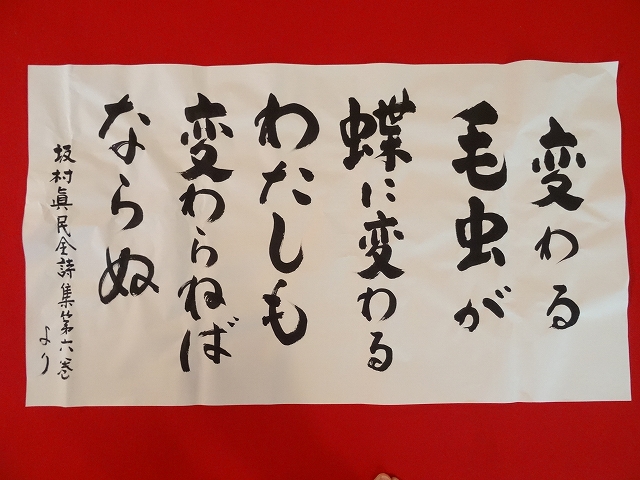 変わる
毛虫が
蝶に変わる
わたしも
変わらねば
ならぬ
坂村眞民全詩集第六巻
より